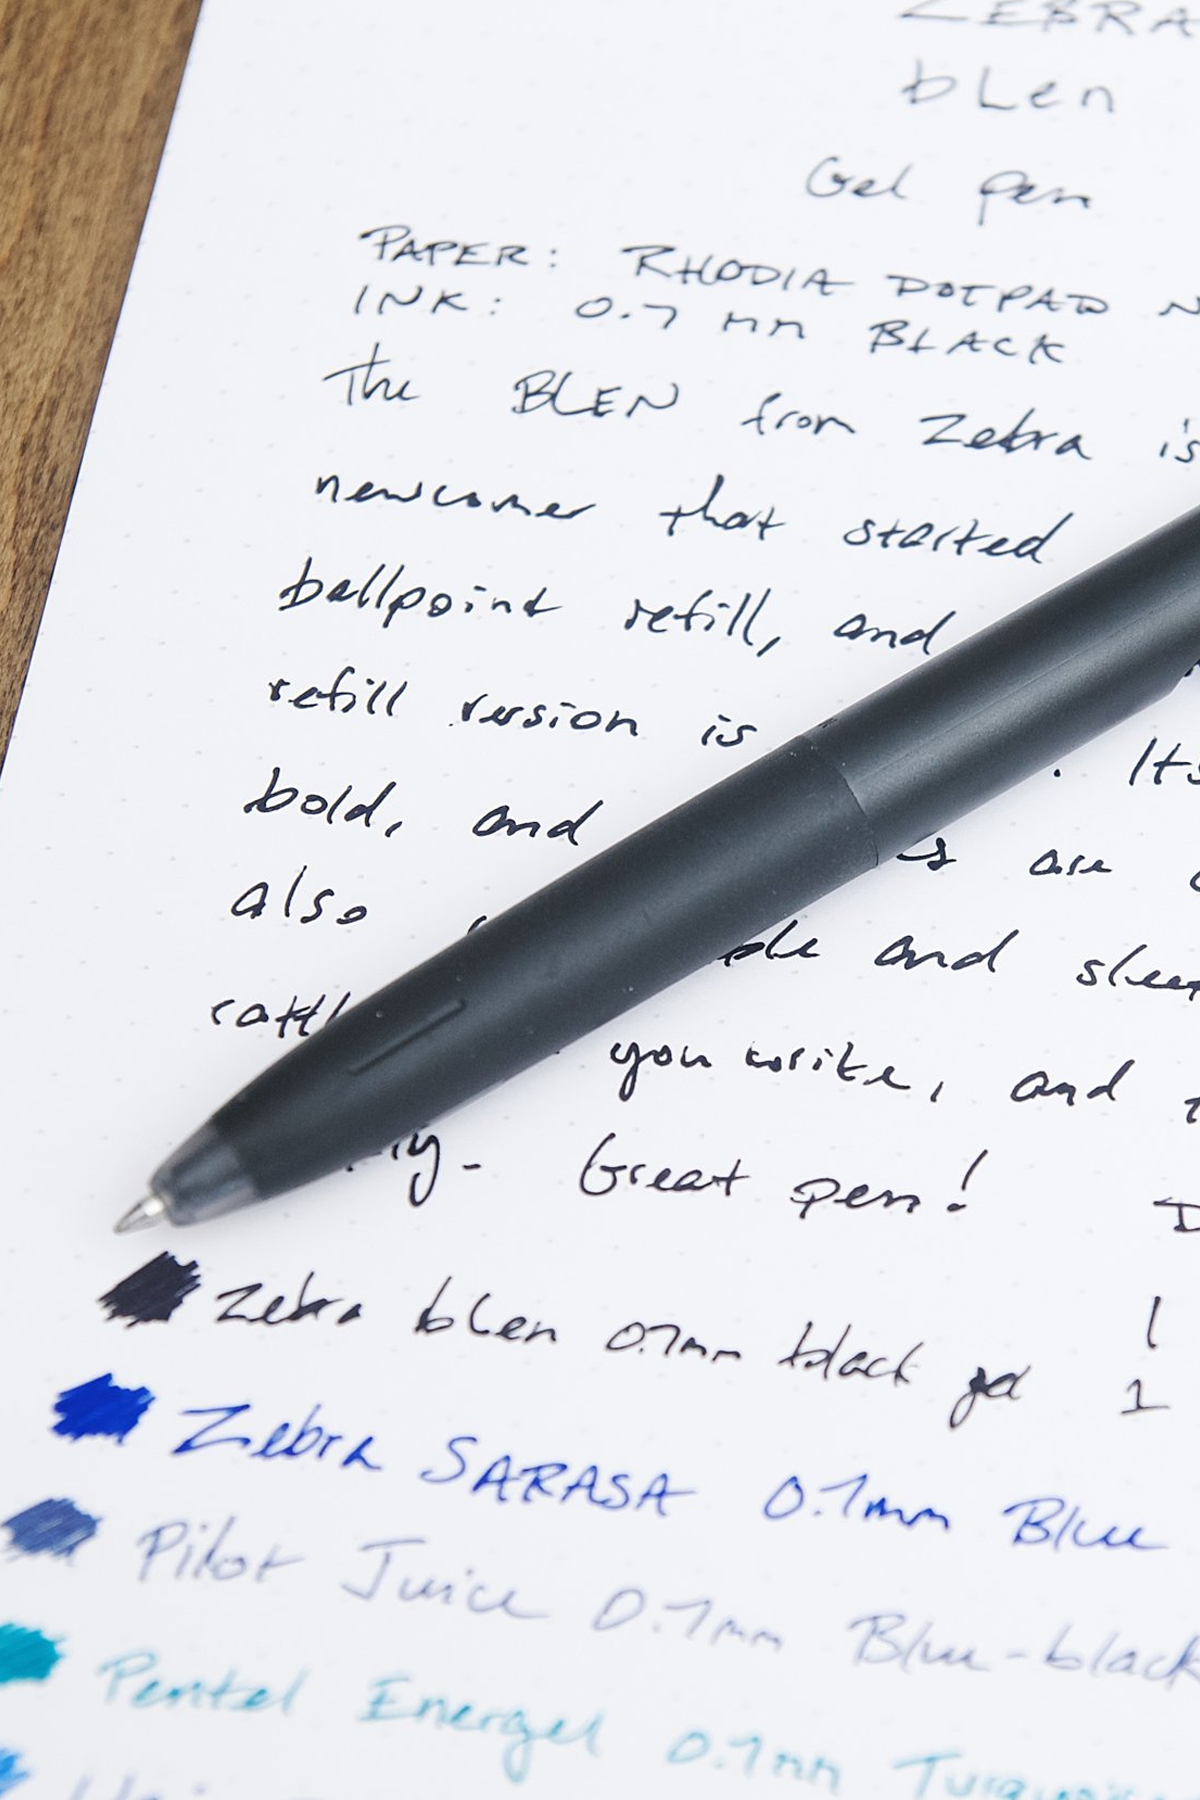 ZEBRA
bLen
Gel pen
PAPER: RHODIA DOTPAD
INK: 0.7 mm BLACK
The BLEN from Zebra is
newcomer that started
ballpoint refill, and
refill version is . Its
bold, and are
also and
you write, and
Great pen!
Zebra bLen 0.7mm black gel 1
1
Zebra SARASA 0.7mm Blue
Pilot Juice 0.7mm Blue-black
Pentel Energel 0.7mm